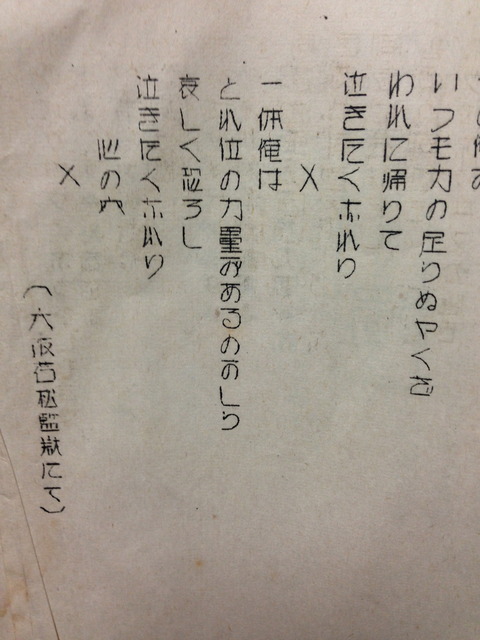 いつも力の足りぬヤくざ
われに帰りて
泣きたくなれり
×
一体俺は
どれ位の力量があるのかしら
哀しく恐ろし
泣きたくなれり
心の穴
×
(大阪若松監獄にて)